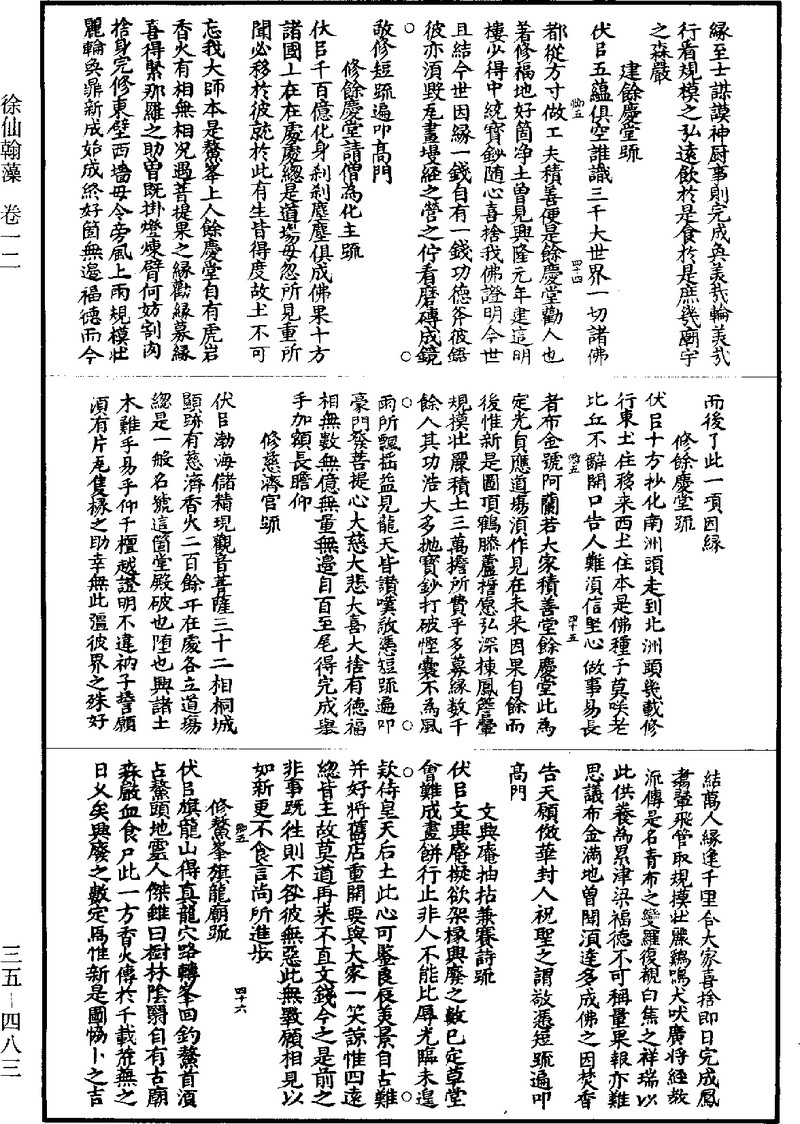 徐仙翰藻　卷一二
三五－四八三
緣至士謀謨神厨事則完成奐美哉輪美哉
行看規模之弘遠飲於是食於是庶幾廟宇
之森嚴
建餘慶堂疏
伏㠯五蘊俱空誰識三千大世界一切諸佛
都從方寸做工夫積善便是餘慶堂勸人也
四十四
著修福地好箇净土曾見興隆元年建這明
樓少得中統寶鈔随心喜捨我佛證明今世
且結今世因緣一錢自有一錢功德斧彼鋸
彼亦湏毀瓦畫墁經之營之佇看磨磚成鏡
敬修短疏遍叩高門
修餘慶堂請僧為化主疏
伏㠯千百億化身刹刹塵塵俱成佛果十方
諸國土在在處處緫是道塲毋忽所見重所
聞必移於彼就於此有生皆得度故土不可
忘我大師本是鰲峯上人餘慶堂自有虎岩
香火有相無相况遇菩提果之緣勸緣募緣
喜得緊那羅之助曽既掛燈煉臂何妨割肉
捨身完修東壁西墻毋令旁風上雨規模壮
麗輪奐鼎新成始成終好箇無邊福德而今
而後了此一項因緣
修餘慶堂疏
伏㠯十方抄化南洲頭走到北洲頭幾載修
行東土住移来西土住本是佛種子莫咲老
比丘不辭開口告人難湏信堅心做事易長
四十五
者布金號阿蘭若大家積善堂餘慶堂此為
定光員應道塲湏作見在未来因果自餘而
後惟新是圖頂鶴膝蘆誓愿弘深棟鳳甍翬
規模壮麗積土三萬擔所費乎多募緣数千
餘人其功浩大多抛寶鈔打破慳囊不為風
雨所飄揺益見龍天皆讃嘆敬憑短疏遍叩
豪門發菩提心大慈大悲大喜大捨有德福
相無数無億無量無邊自百至尾得完成舉
手加額長瞻仰
修慈濟宫疏
伏㠯渤海儲精現觀音菩薩三十二相桐城
顯跡有慈濟香火二百餘年在處各立道塲
緫是一般名號這箇堂殿破也堕也興諸土
木難乎易乎仰千檀越證明不違衲子誓願
湏有片瓦隻椽之助幸無此疆彼界之殊好
結萬人緣逢千里合大家喜捨即日完成鳳
翥翬飛管取規模壮麗鷄鳴犬吠廣将經教
流傳是名青布之變羅復覩白焦之祥瑞以
此供養為累津梁福德不可稱量果報亦難
思議布金滿地曽聞湏逹多成佛之因焚香
告天願做華封人祝聖之謂敬憑短疏遍叩
高門
文興庵抽拈兼賽詩疏
伏㠯文興庵擬欲架椽興廢之数已定草堂
會難成畫餅行止非人不能比辱光臨未遑
欵待皇天后土此心可鑒良辰美景自古難
并好将舊店重開要與大家一笑諒惟四逺
緫皆主故莫道再来不直文錢今之是前之
非事既徃則不咎彼無惡此無斁願相見以
如新更不食言尚所進步
修鰲峯旗龍廟疏
四十六
伏㠯旗龍山得真龍穴路轉峯回釣鰲首湏
占鰲頭地靈人傑錐曰樹林陰翳自有古廟
森嚴血食尸此一方香火傳於千載荒無之
日乆矣興廢之数定焉惟新是圖恊卜之吉